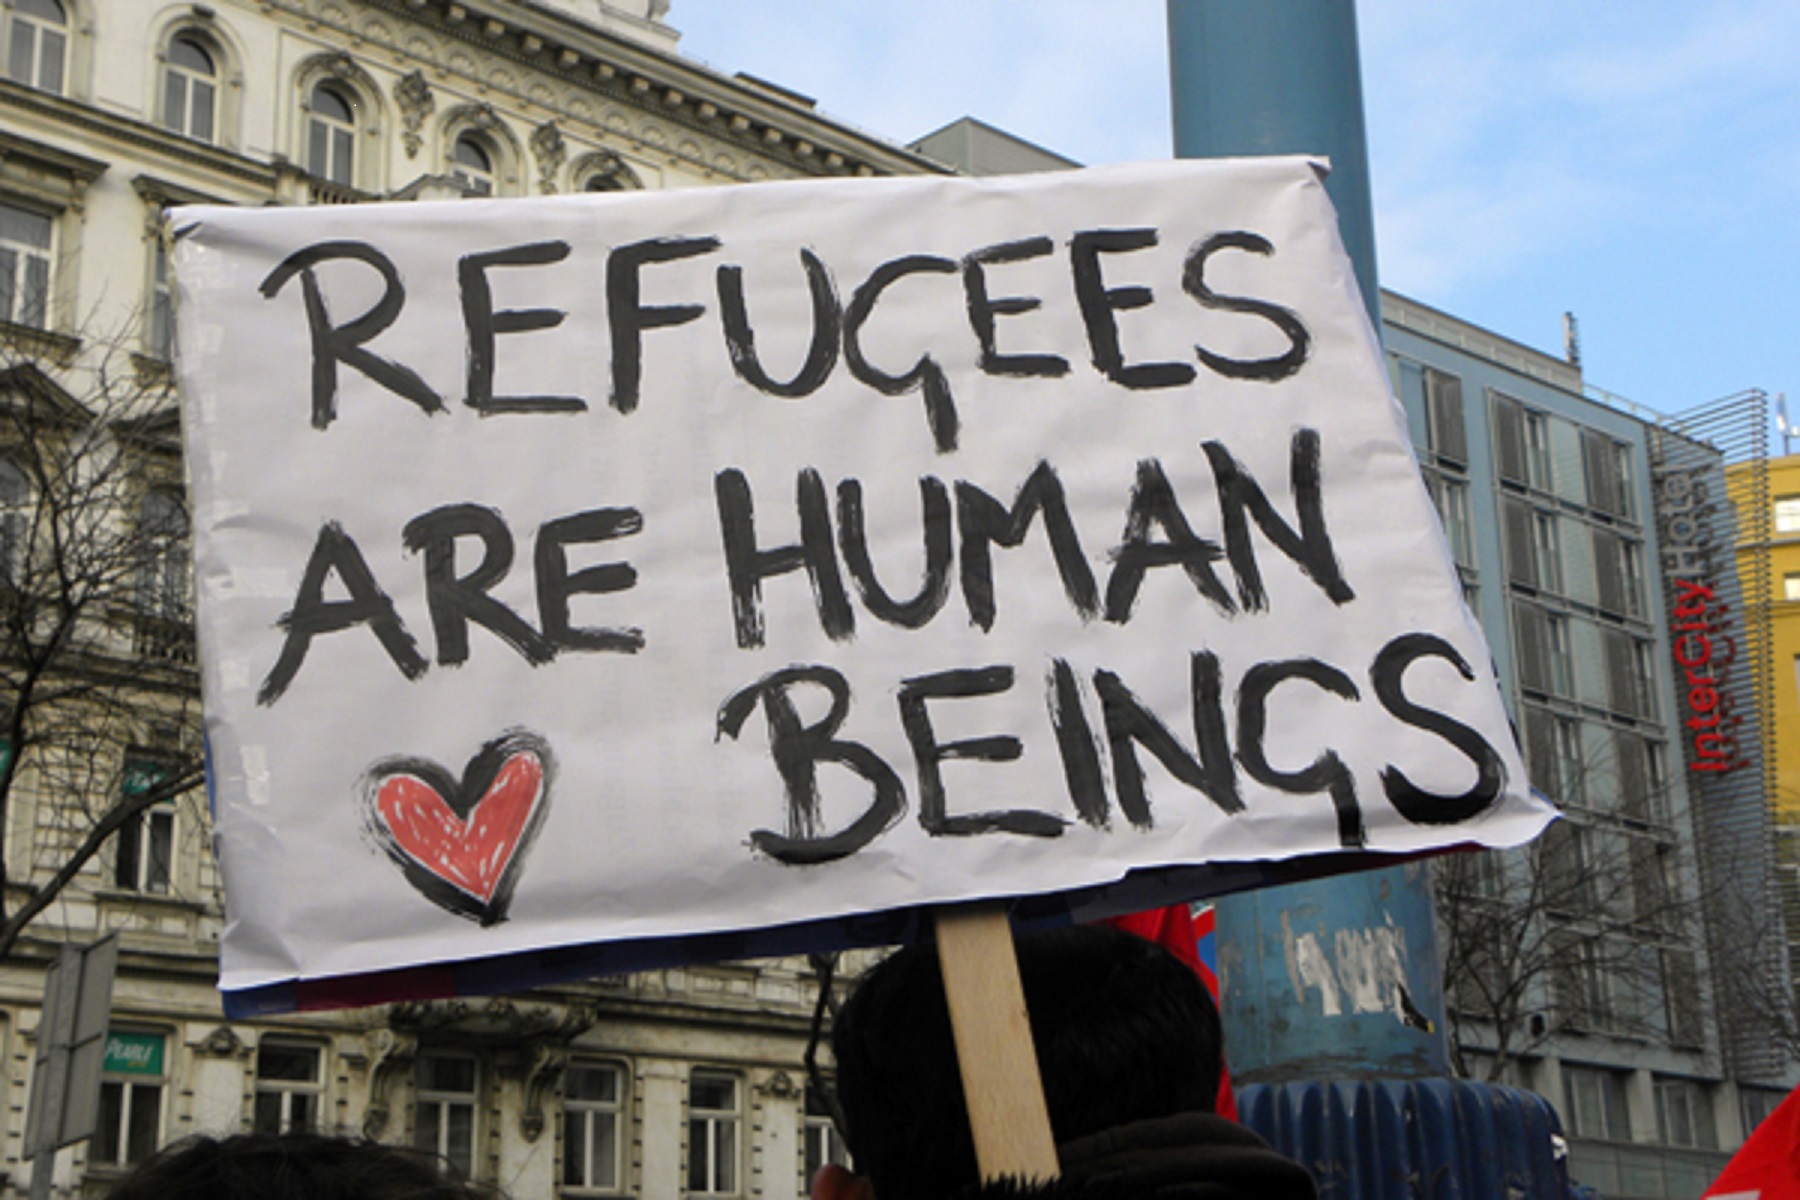 REFUGEES
ARE HUMAN
BEINGS
InterCity Hotel
PEARLE